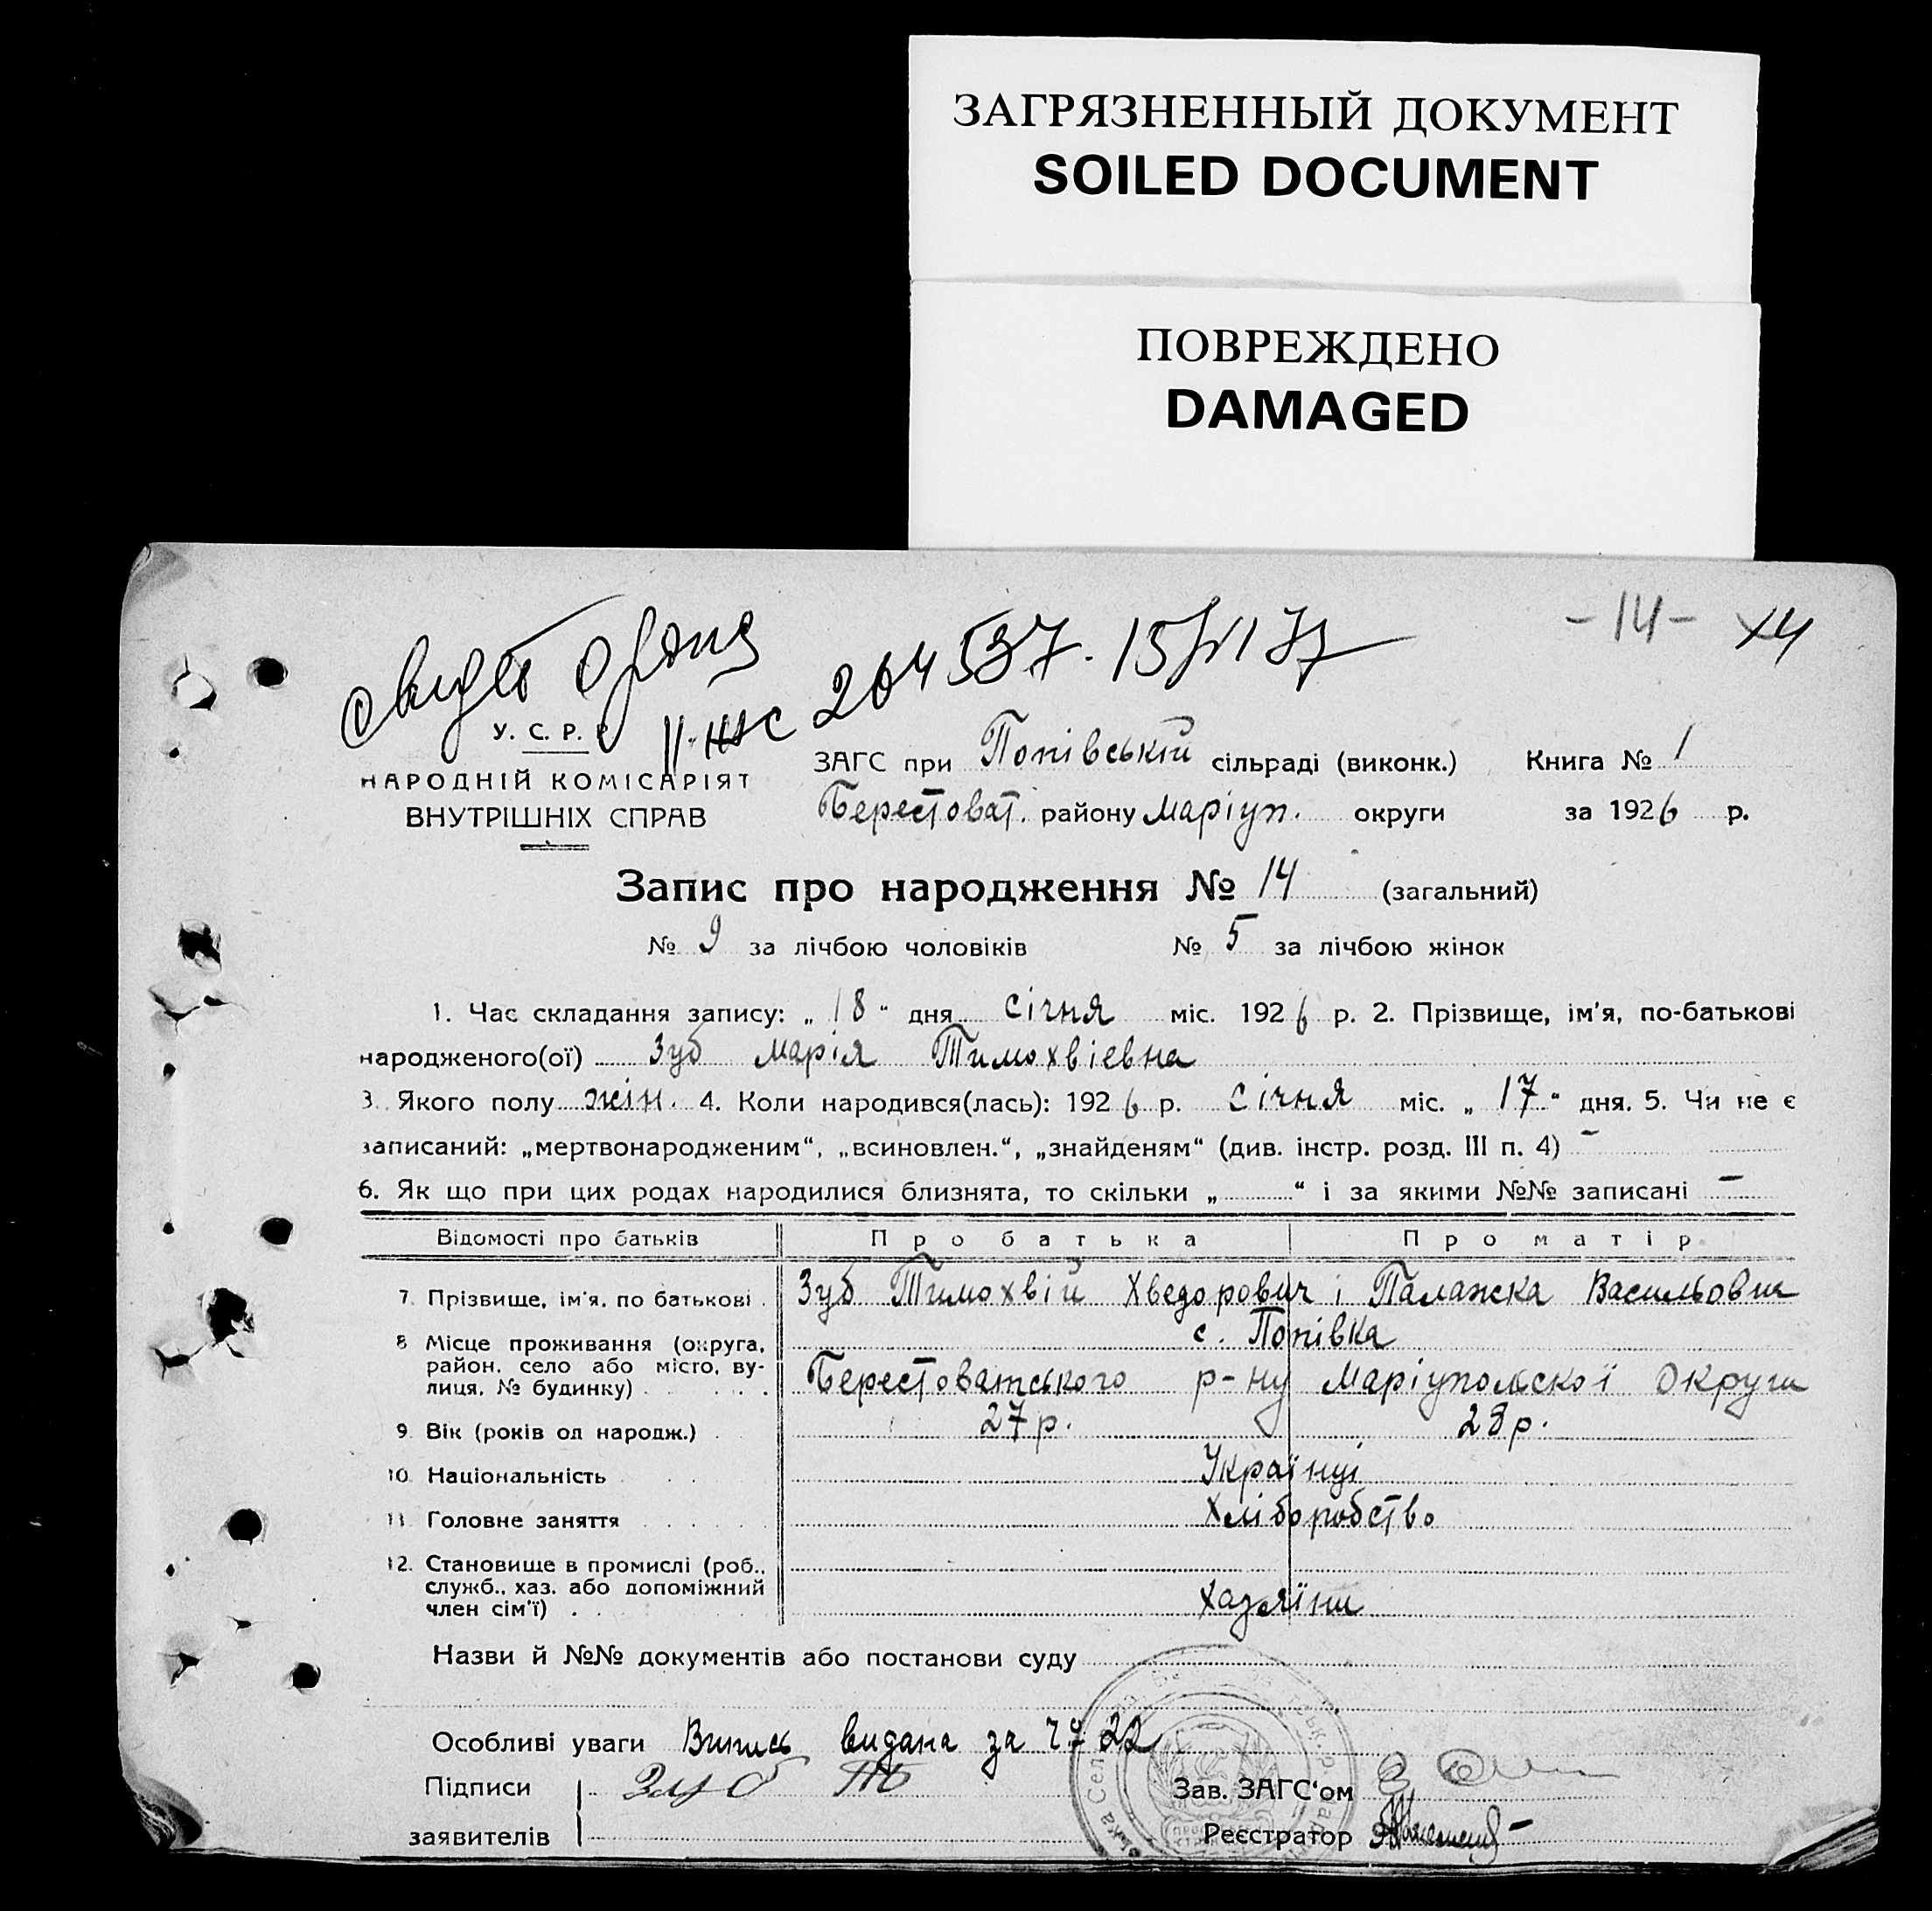 ЗАГРЯЗНЕННЫЙ ДОКУМЕНТ
SOILED DOCUMENT
ПОВРЕЖДЕНО
DAMAGED
-14- 14
264537. 15/VI 37
У. С. Р. Р.
НАРОДНІЙ КОМІСАРІЯТ
ВНУТРІШНІХ СПРАВ
ЗАГС при Попівській сільраді (виконк.) Книга № 1
Берестоват. району Маріуп. округи за 1926 р.
Запис про народження № 14 (загальний)
№ 9 за лічбою чоловіків № 5 за лічбою жінок
1. Час складання запису: „18“ дня січня міс. 1926 р. 2. Прізвище, ім'я, по-батькові
народженого(ої) Зуб Марія Тимохвієвна
3. Якого полу жін. 4. Коли народився(лась): 1926 р. січня міс. „17“ дня. 5. Чи не є
записаний: „мертвонародженим“, „всиновлен.“, „знайденям“ (див. інстр. розд. III п. 4) -
6. Як що при цих родах народилися близнята, то скільки „ “ і за якими №№ записані -
Відомості про батьків Про батька Про матір
7. Прізвище, ім'я, по батькові Зуб Тимохвій Хведорович і Палажка Васильовна
8 Місце проживання (округа, с. Попівка
район, село або місто, ву-
лиця, № будинку) Берестоватського р-ну Маріупольскої Округи
9. Вік (років од народж.) 27 р. 28 р.
10. Національність Українці
11. Головне заняття Хліборобство
12. Становище в промислі (роб.,
служб., хаз. або допоміжний
член сім'ї) Хазяїни
Назви й №№ документів або постанови суду
Особливі уваги Випись видана за 22
Підписи Зуб Зав. ЗАГС'ом
заявителів Реєстратор